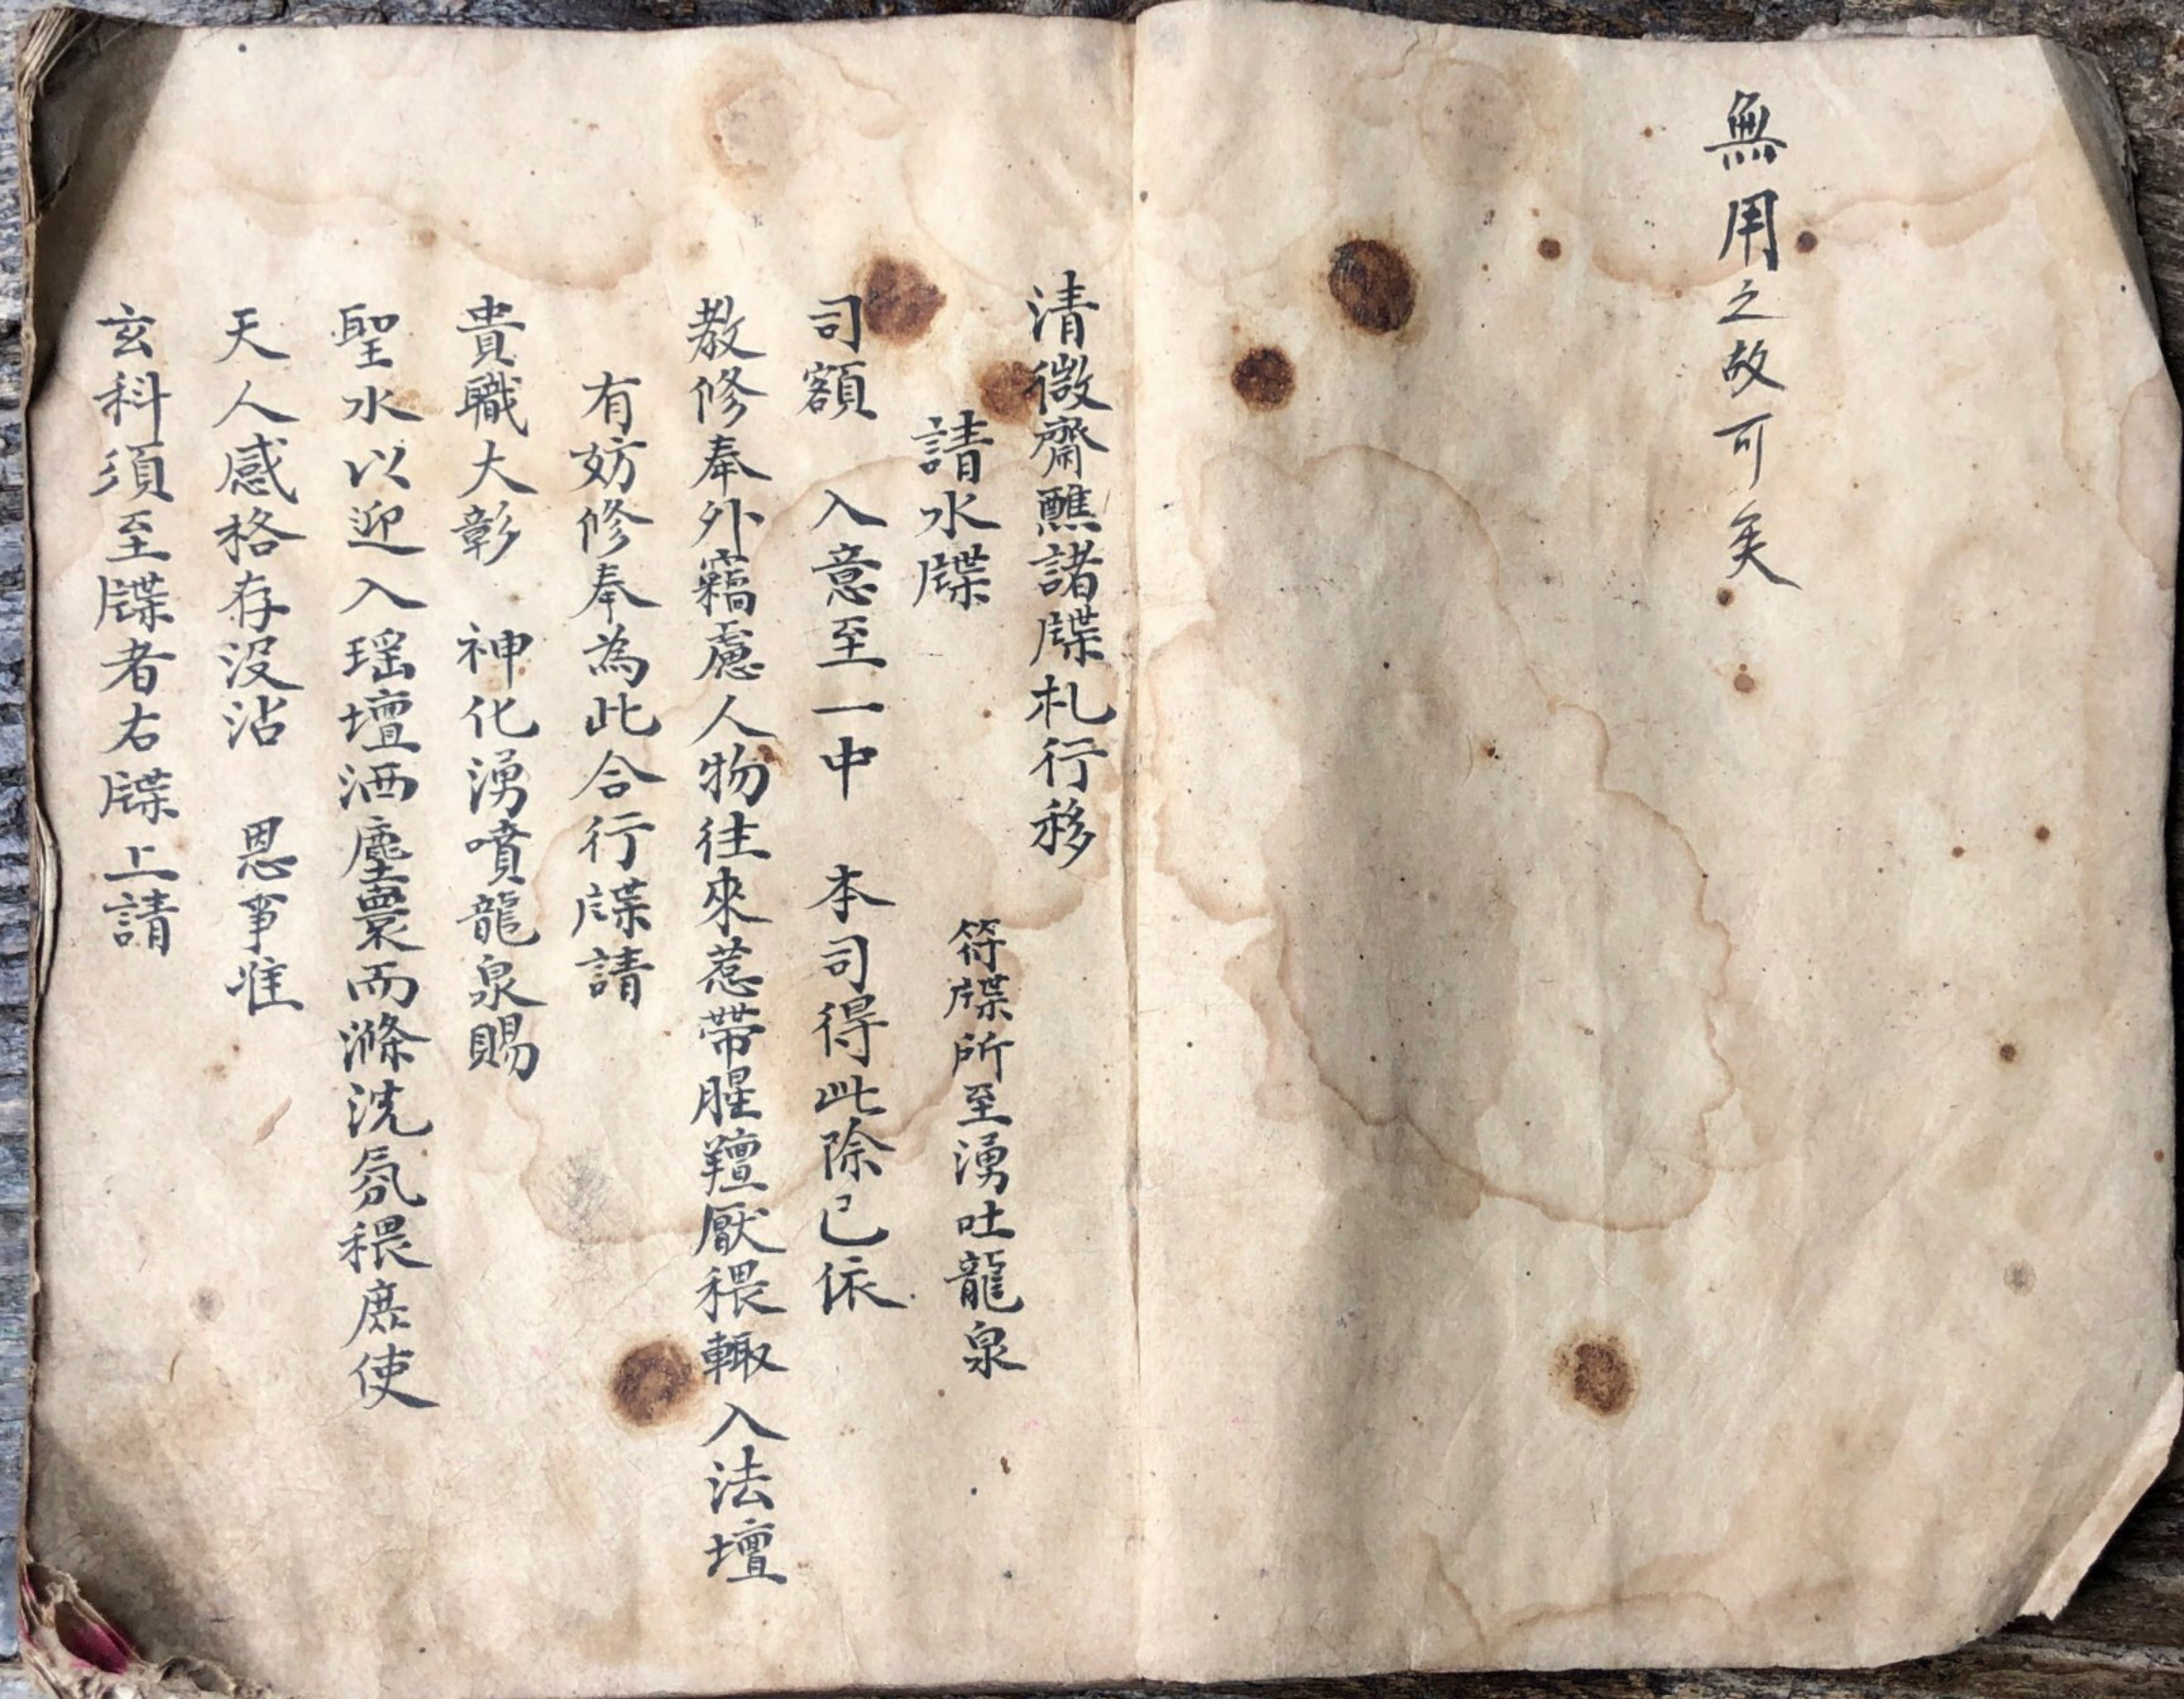 無用之故可矣
清微齋醮諸牒札行移
請水牒 符牒所至湧吐龍泉
司額 入意至一中 本司得此除已依
教修奉外竊慮人物往來惹帶腥羶厭穢輙入法壇
有妨修奉為此合行牒請
貴職大彰 神化湧噴龍泉賜
聖水以迎入瑶壇洒塵寰而滌洗氛穢庶使
天人感格存沒沾 恩事惟
玄科須至牒者右牒上請